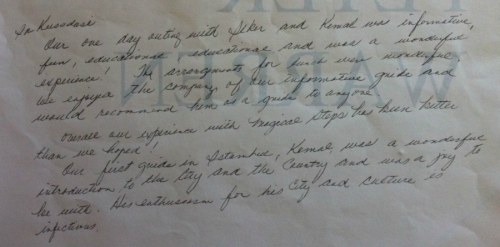 In Kusadasi
Our one day outing with Ilker and Kemal was informative,
fun, educational educational and was a wonderful
experience! The arrangements for lunch were wonderful,
we enjoyed the company of our informative guide and
would recommend him as a guide to anyone.
Overall our experience with Magical Steps has been better
than we hoped!
Our first guide in Istanbul, Kemal, was a wonderful
introduction to the City and the Country and was a joy to
be with. His enthusiasm for his City and culture is
infectious.
WARREN